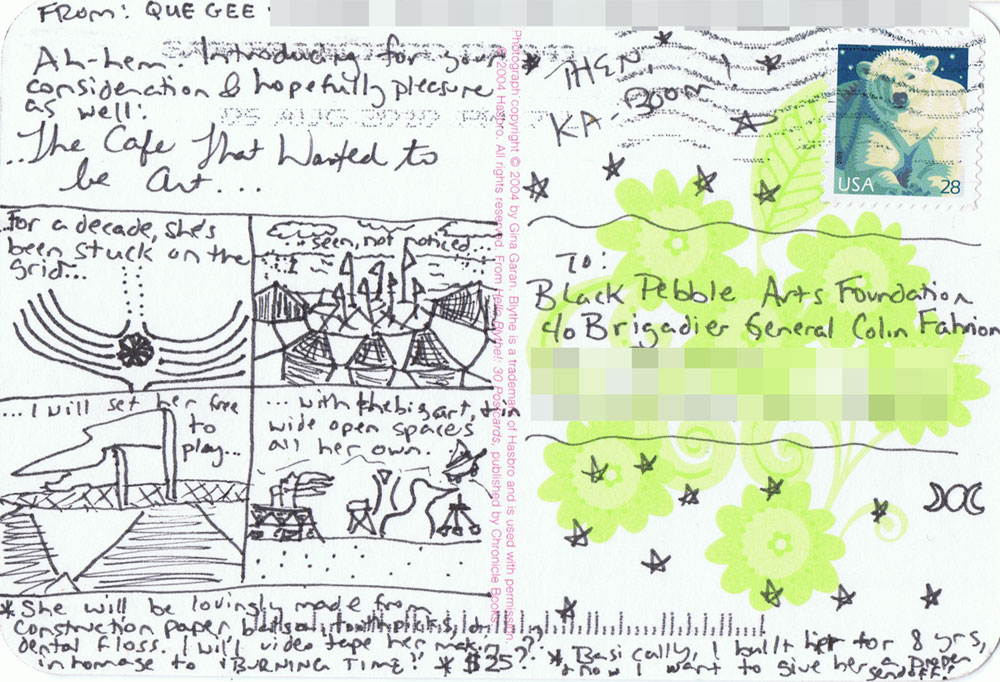 FROM: QUE GEE
Ah-hem. Introducing for your
consideration & hopefully pleasure
as well:
..The Cafe That Wanted to
be Art....
For a decade, she's
been stuck on the
grid...
..seen, not noticed...
...I will set her free
to
play...
... with the big art, in
wide open spaces
all her own.
* She will be lovingly made from
construction paper balsa, toothpicks, or
dental floss. I will video tape her making
in homage to "BURNING TIME!" * $25??
* Basically, I built her for 8 yrs,
& now I want to give her a proper
sendoff!
Photograph copyright © 2004 by Gina Garan. Blythe is a trademark of Hasbro and is used with permission.
©2004 Hasbro. All rights reserved. From Hello Blythe!: 30 Postcards, published by Chronicle Books.
05 AUG 2020
THEN,
KA-BOOM!
USA 28
To:
Black Pebble Arts Foundation
c/o Brigadier General Colin Fahrion